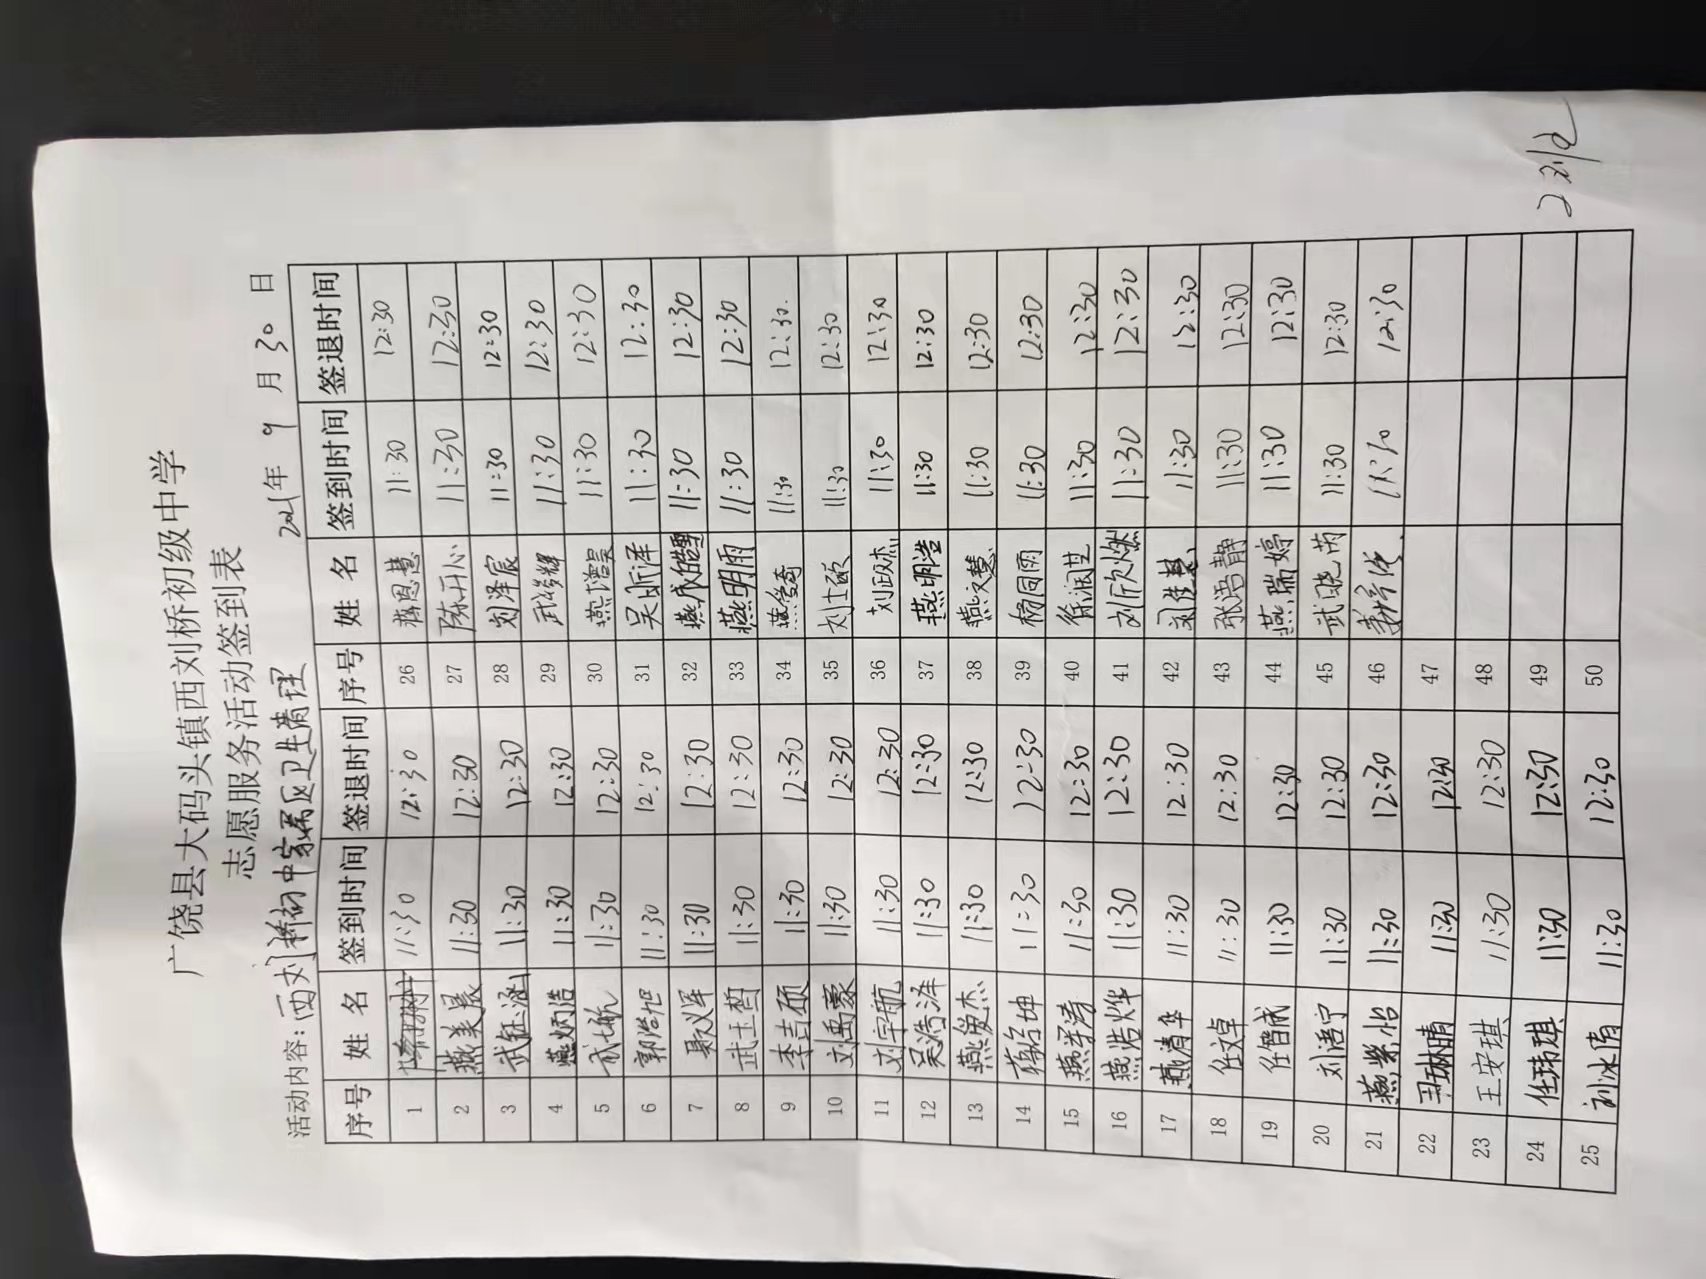 广饶县大码头镇西刘桥初级中学
志愿服务活动签到表
活动内容：西刘桥初中家属区卫生清理 2021年 9 月 30 日
序号 姓 名 签到时间 签退时间 序号 姓 名 签到时间 签退时间
1 11:30 12:30 26 蒋恩慧 11:30 12:30
2 燕美晨 11:30 12:30 27 陈丹心 11:30 12:30
3 武钰涵 11:30 12:30 28 刘泽宸 11:30 12:30
4 燕炳浩 11:30 12:30 29 武 11:30 12:30
5 武 航 11:30 12:30 30 燕 昊 11:30 12:30
6 郭浩旭 11:30 12:30 31 吴昕泽 11:30 12:30
7 聂义辉 11:30 12:30 32 燕成 11:30 12:30
8 武玉哲 11:30 12:30 33 燕明雨 11:30 12:30
9 李吉硕 11:30 12:30 34 燕 奇 11:30 12:30
10 刘禹豪 11:30 12:30 35 刘士硕 11:30 12:30
11 刘宇航 11:30 12:30 36 刘政杰 11:30 12:30
12 吴浩泽 11:30 12:30 37 燕明浩 11:30 12:30
13 燕俊杰 11:30 12:30 38 燕汉慧 11:30 12:30
14 蒋怡坤 11:30 12:30 39 杨同雨 11:30 12:30
15 燕学涛 11:30 12:30 40 徐润芝 11:30 12:30
16 燕浩烨 11:30 12:30 41 刘欣燃 11:30 12:30
17 燕春华 11:30 12:30 42 刘佳慧 11:30 12:30
18 任焯 11:30 12:30 43 张语静 11:30 12:30
19 任智成 11:30 12:30 44 燕瑞婷 11:30 12:30
20 刘语宁 11:30 12:30 45 武晓芮 11:30 12:30
21 燕紫怡 11:30 12:30 46 11:30 12:30
22 琳晴 11:30 12:30 47
23 王安琪 11:30 12:30 48
24 任玮琪 11:30 12:30 49
25 刘冰倩 11:30 12:30 50